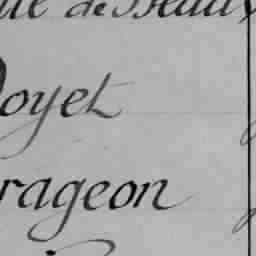 de Beau
oyet
rageon